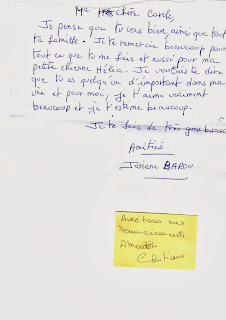 Ma chère Carole,
Je pense que tu vas bien, ainsi que tout
ta famille. Je te remercie beaucoup pour
tout ce que tu me fais et aussi pour ma
petite chienne Hélia. Je voulais te dire
que tu es quelqu'un d'important dans ma
vie et pour moi, je t'aime vraiment
beaucoup et je t'estime beaucoup.
Je te fais de très gros
Amitiés.
Josiane BAROU
Avec tous mes
remerciements
A bientôt